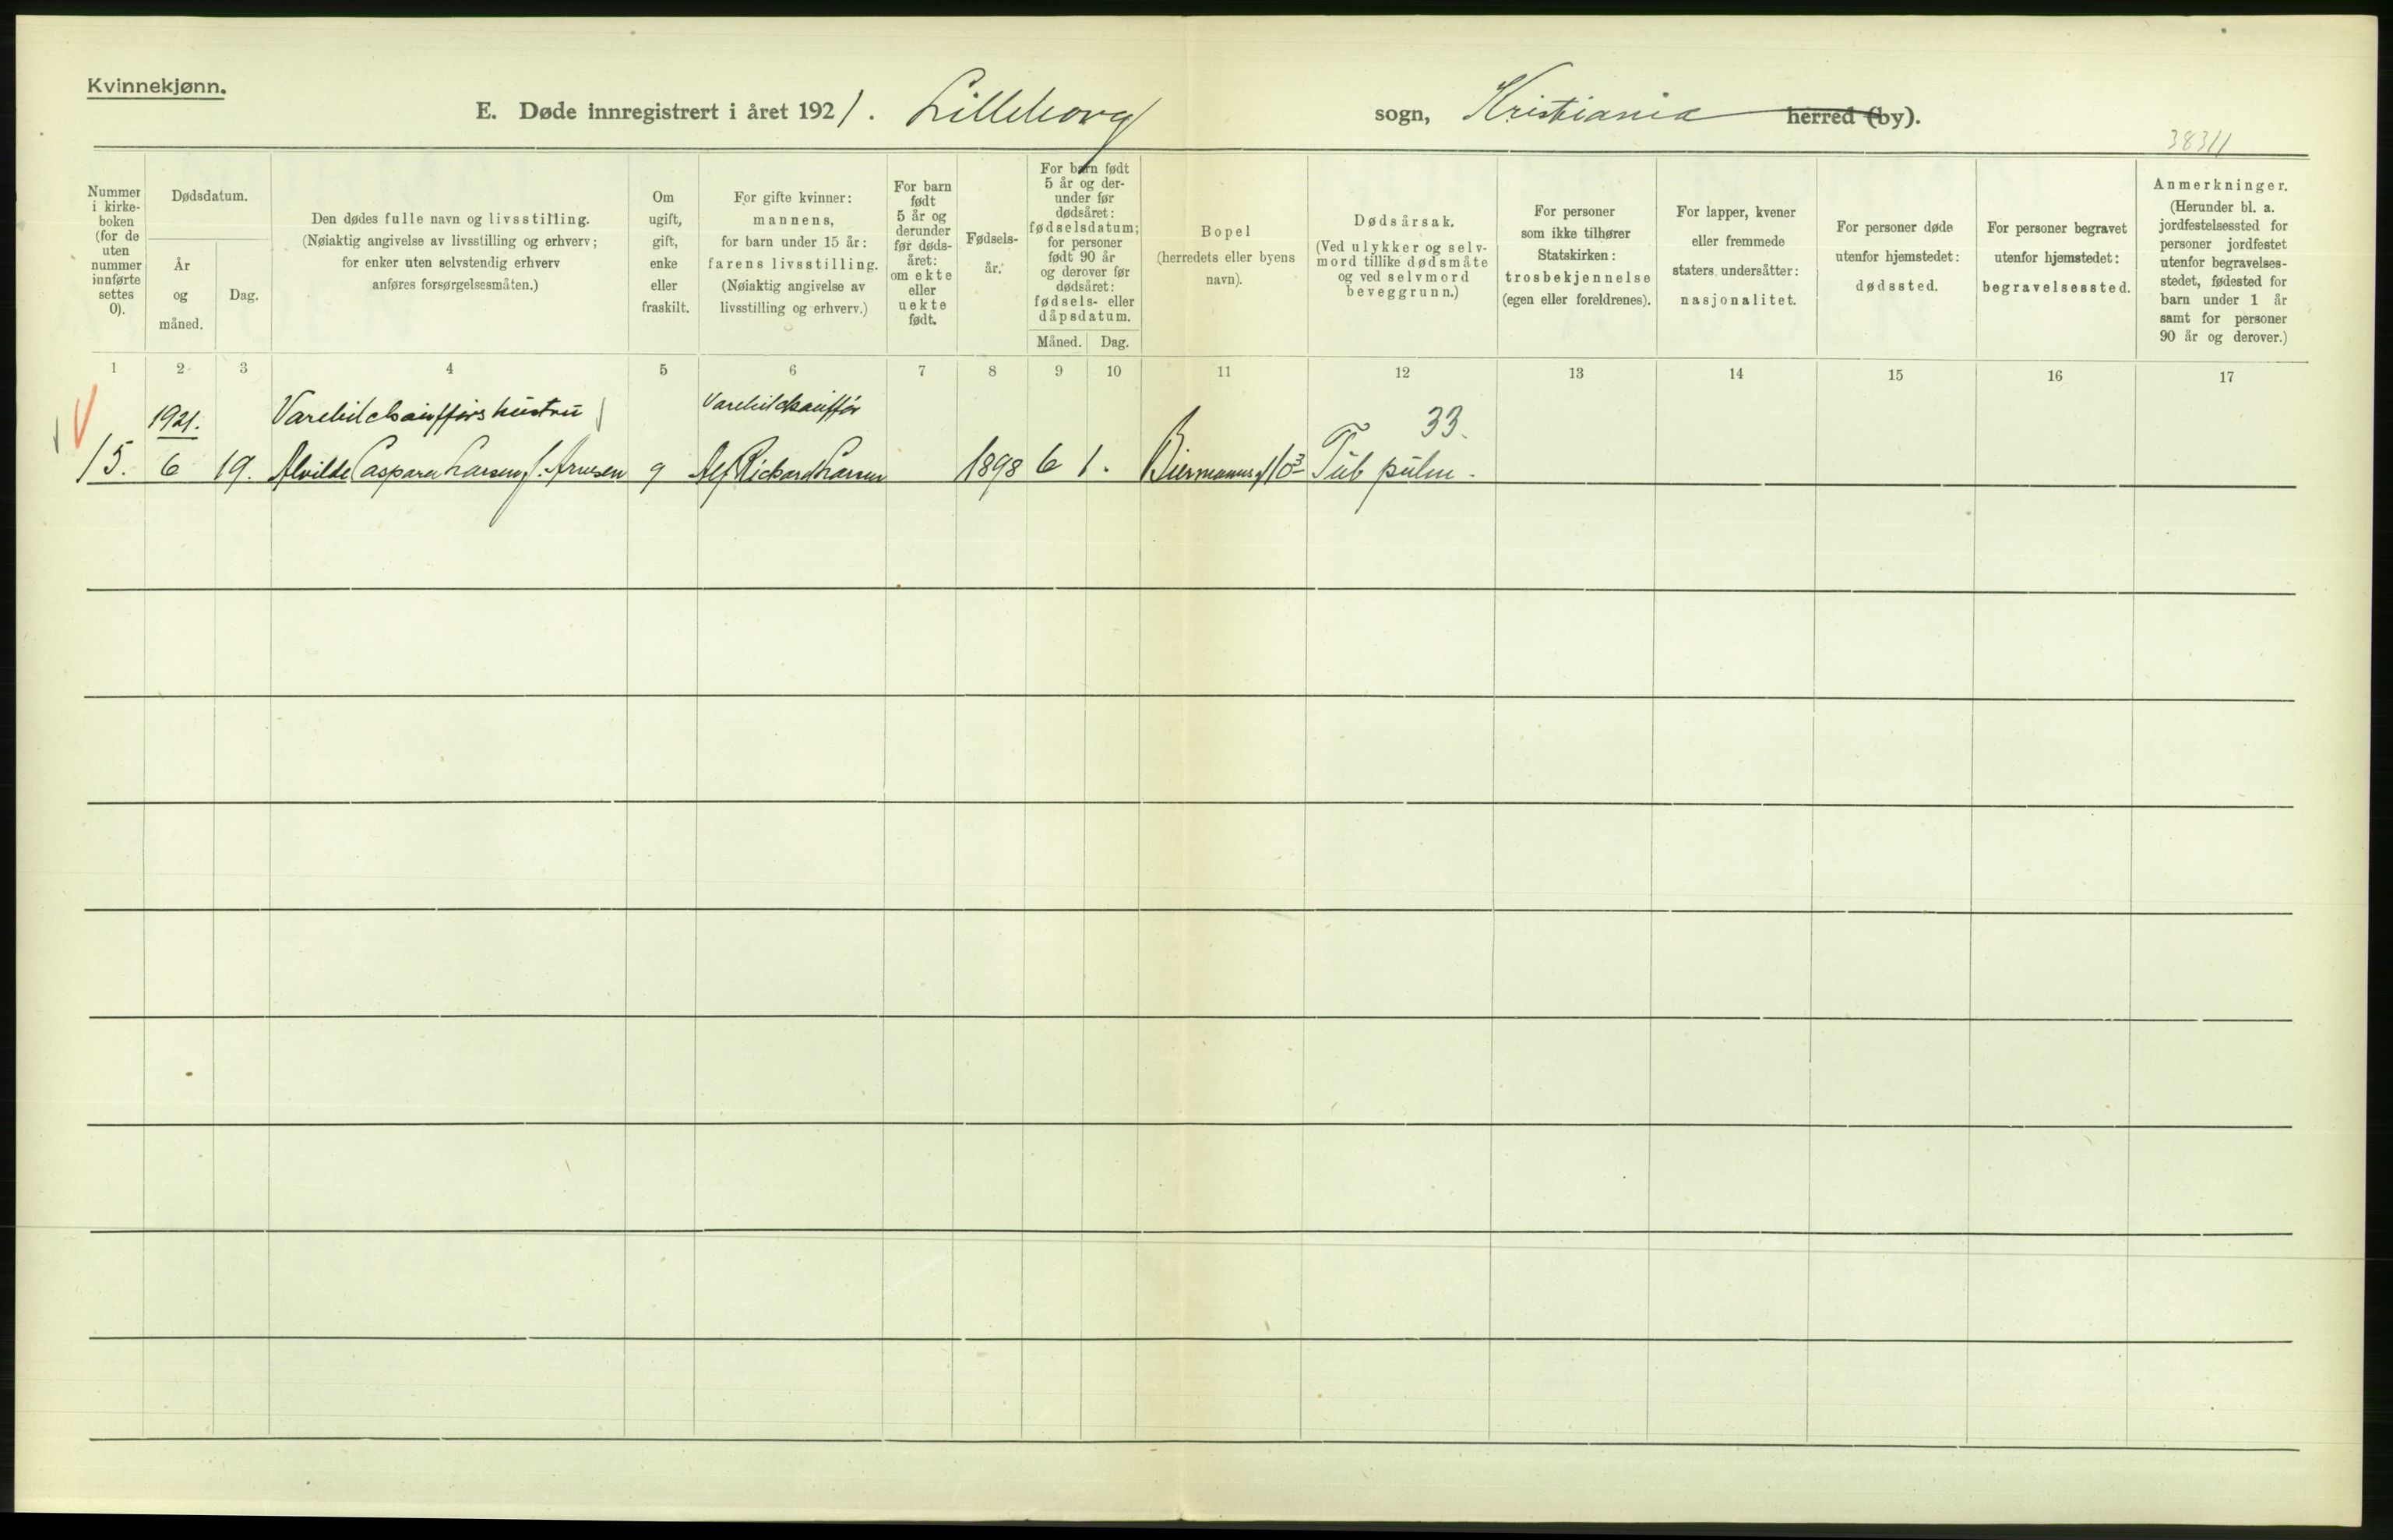 Kvinnekjønn.
E. Døde innregistrert i året 1921. Lilleborg sogn, Kristiania herred (by).
38311
Nummer i kirkeboken (for de uten nummer innførte settes 0).
Dødsdatum.
År og måned.
Dag.
Den dødes fulle navn og livsstilling.
(Nøiaktig angivelse av livsstilling og erhverv;
for enker uten selvstendig erhverv
anføres forsørgelsesmåten.)
Om
ugift,
gift,
enke
eller
fraskilt.
For gifte kvinner:
mannens,
for barn under 15 år:
farens livsstilling.
(Nøiaktig angivelse av
livsstilling og erhverv.)
For barn
født
5 år og
derunder
før døds-
året:
om ekte
eller
uekte
født.
Fødsels-
år.
For barn født
5 år og der-
under før
dødsåret:
fødselsdatum;
for personer
født 90 år
og derover før
dødsåret:
fødsels- eller
dåpsdatum.
Måned. Dag.
Bopel
(herredets eller byens
navn).
Dødsårsak.
(Ved ulykker og selv-
mord tillike dødsmåte
og ved selvmord
beveggrunn.)
For personer
som ikke tilhører
Statskirken:
trosbekjennelse
(egen eller foreldrenes).
For lapper, kvener
eller fremmede
staters undersåtter:
nasjonalitet.
For personer døde
utenfor hjemstedet:
dødssted.
For personer begravet
utenfor hjemstedet:
begravelsessted.
Anmerkninger.
(Herunder bl. a.
jordfestelsessted for
personer jordfestet
utenfor begravelses-
stedet, fødested for
barn under 1 år
samt for personer
90 år og derover.)
1 2 3 4 5 6 7 8 9 10 11 12 13 14 15 16 17
1921. Varebilchaufførs hustru Varebilchauffør 33.
15. 6 19. Alvilde Caspara Larsen f. Arnesen g Alf Rickard Larsen 1898 6 1. Biermannsgt 10³ Tub pulm.